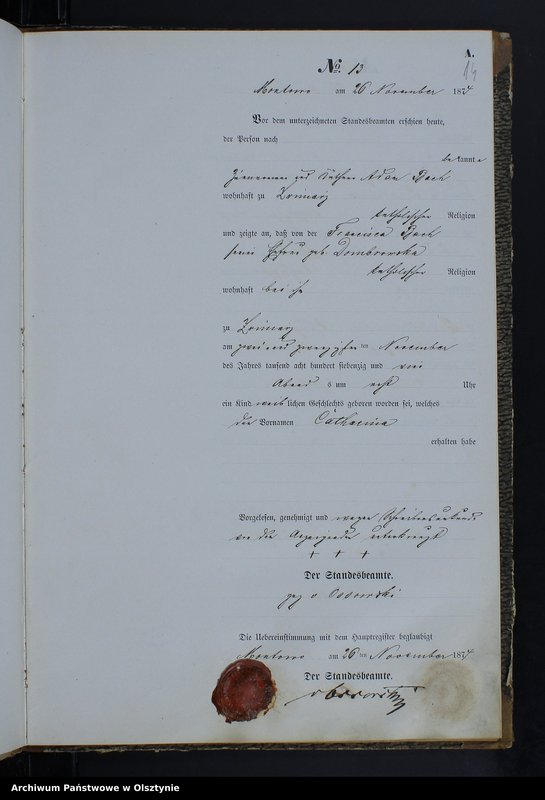 A.
14
No. 13
Montowo am 26 November 1874
Vor dem unterzeichneten Standesbeamten erschien heute,
der Person nach
bekannte
Adam Bach
wohnhaft zu
katholischer Religion
und zeigte an, daß von der Francisca Bach
seiner Ehefrau geb Dombrowska
katholischer Religion
wohnhaft bei ihm
zu
am zwei und zwanzigsten ten November
des Jahres tausend acht hundert siebenzig und vier
Abend s um acht Uhr
ein Kind weiblichen Geschlechts geboren worden sei, welches
die Vornamen Catharina
erhalten habe
Vorgelesen, genehmigt und wegen Schreibensunkunde
von die unterkreuzt
+ + +
Der Standesbeamte.
gez v Ossowski
Die Uebereinstimmung mit dem Hauptregister beglaubigt
Montowo am 26 ten November 1874
Der Standesbeamte.
v Ossowski
Archiwum Państwowe w Olsztynie